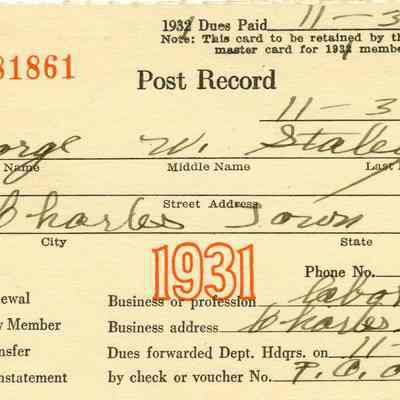 1932 Dues Paid 11 - 3
Note: This card to be retained by th
master card for 1932 membe
81861
Post Record
11 - 3
orge W. Stale
Name Middle Name Last
Street Address
Charles Town
City State
1931
Phone No.
ewal Business or profession labor
y Member Business address Charles
nsfer Dues forwarded Dept. Hdqrs. on 11-
nstatement by check or voucher No. P. O. O